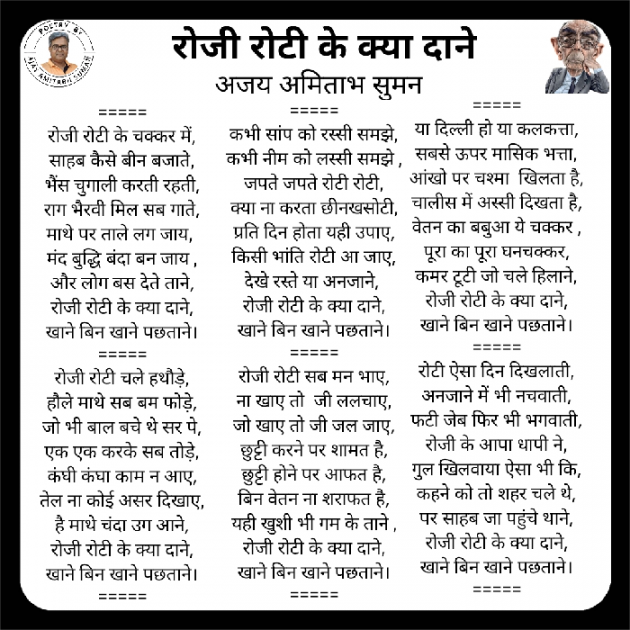 POETRY BY
AJAY AMITABH SUMAN
रोजी रोटी के क्या दाने
अजय अमिताभ सुमन
=====
रोजी रोटी के चक्कर में,
साहब कैसे बीन बजाते,
भैंस चुगाली करती रहती,
राग भैरवी मिल सब गाते,
माथे पर ताले लग जाय,
मंद बुद्धि बंदा बन जाय ,
और लोग बस देते ताने,
रोजी रोटी के क्या दाने,
खाने बिन खाने पछताने।
=====
रोजी रोटी चले हथौड़े,
हौले माथे सब बम फोड़े,
जो भी बाल बचे थे सर पे,
एक एक करके सब तोड़े,
कंघी कंघा काम न आए,
तेल ना कोई असर दिखाए,
है माथे चंदा उग आने,
रोजी रोटी के क्या दाने,
खाने बिन खाने पछताने।
=====
=====
कभी सांप को रस्सी समझे,
कभी नीम को लस्सी समझे ,
जपते जपते रोटी रोटी,
क्या ना करता छीनखसोटी,
प्रति दिन होता यही उपाए,
किसी भांति रोटी आ जाए,
देखे रस्ते या अनजाने,
रोजी रोटी के क्या दाने,
खाने बिन खाने पछताने।
=====
रोजी रोटी सब मन भाए,
ना खाए तो जी ललचाए,
जो खाए तो जी जल जाए,
छुट्टी करने पर शामत है,
छुट्टी होने पर आफत है,
बिन वेतन ना शराफत है,
यही खुशी भी गम के ताने ,
रोजी रोटी के क्या दाने,
खाने बिन खाने पछताने।
=====
=====
या दिल्ली हो या कलकत्ता,
सबसे ऊपर मासिक भत्ता,
आंखो पर चश्मा खिलता है,
चालीस में अस्सी दिखता है,
वेतन का बबुआ ये चक्कर ,
पूरा का पूरा घनचक्कर,
कमर टूटी जो चले हिलाने,
रोजी रोटी के क्या दाने,
खाने बिन खाने पछताने।
=====
रोटी ऐसा दिन दिखलाती,
अनजाने में भी नचवाती,
फटी जेब फिर भी भगवाती,
रोजी के आपा धापी ने,
गुल खिलवाया ऐसा भी कि,
कहने को तो शहर चले थे,
पर साहब जा पहुंचे थाने,
रोजी रोटी के क्या दाने,
खाने बिन खाने पछताने।
=====